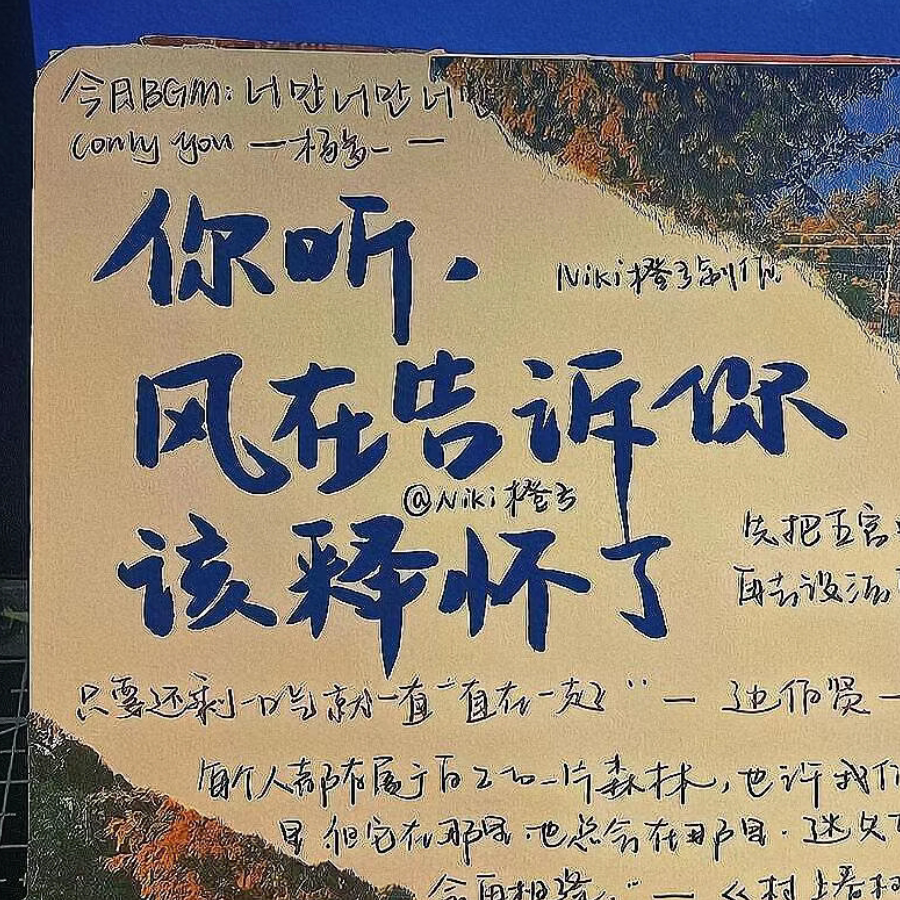 今日BGM: 너만너만너
(only you 一杨多一 一
你听.
Niki橙子制作
风在告诉你
@Niki橙子
该释怀了
先把五官
再去设法
只要还剩一口气就一直一直在一起" 一 边伯贤 一
每个人都有属于自己的一片森林,也许我们
里 但它在那里.也总会在那里.迷失
会再相逢。" 一 《村上春树